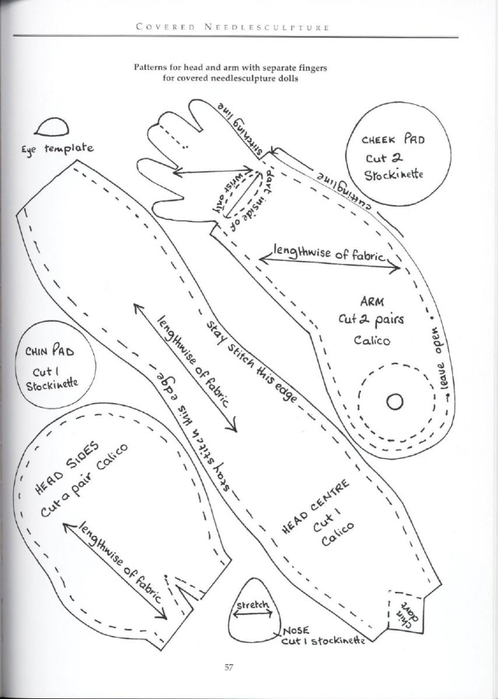 COVERED NEEDLESCULPTURE
Patterns for head and arm with separate fingers
for covered needlesculpture dolls
Eye template
stitching line
cutting line
dart inside of
wrist only
CHEEK PAD
Cut 2
Stockinette
lengthwise of fabric
ARM
Cut 2 pairs
Calico
leave open
CHIN PAD
Cut 1
Stockinette
stay stitch this edge
lengthwise of fabric
stay stitch this edge
HEAD SIDES
Cut a pair Calico
lengthwise of fabric
HEAD CENTRE
Cut 1
Calico
chin
dart
stretch
NOSE
Cut 1 stockinette
57